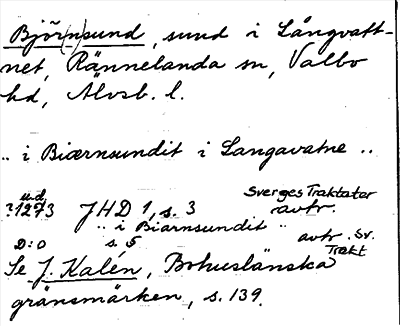 Björ(-)nsund, sund i Långvatt-
net, Rännelanda sn, Valbo
hd, Älvsb. l.
.. i Biærnsundit i Langavatne ..
u.d. Sverges Traktater
?1273 JHD 1, s. 3 avtr.
.. i Biarnsundit ..
D:o s. 5 avtr. Sv. Trakt
Se J. Kalén, Bohuslänska
gränsmärken, s. 139.